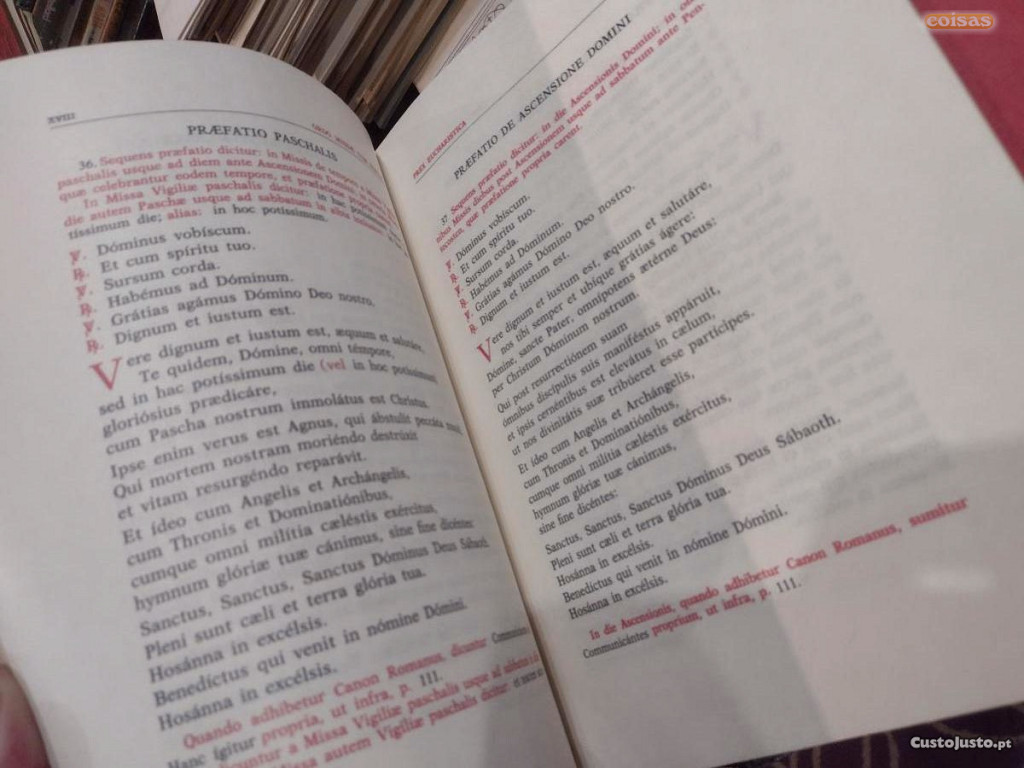 coisas
XVIII
PRÆFATIO PASCHALIS
36. Sequens præfatio dicitur: in Missis de tempore a
paschalis usque ad diem ante Ascensionem Domini;
quæ celebrantur eodem tempore, et præfatione
In Missa Vigiliæ paschalis dicitur: in hac potíssimum
die autem Paschæ usque ad sabbatum in albis
tíssimum die; alias: in hoc potíssimum.
℣. Dóminus vobíscum.
℟. Et cum spíritu tuo.
℣. Sursum corda.
℟. Habémus ad Dóminum.
℣. Grátias agámus Dómino Deo nostro.
℟. Dignum et iustum est.
Vere dignum et iustum est, æquum et salutáre,
Te quidem, Dómine, omni témpore,
sed in hac potíssimum die (vel in hoc potíssimum)
gloriósius prædicáre,
cum Pascha nostrum immolátus est Christus.
Ipse enim verus est Agnus, qui ábstulit peccáta mundi.
Qui mortem nostram moriéndo destrúxit
et vitam resurgéndo reparávit.
Et ídeo cum Angelis et Archángelis,
cum Thronis et Dominatiónibus,
cumque omni milítia cæléstis exércitus,
hymnum glóriæ tuæ cánimus, sine fine dicéntes:
Sanctus, Sanctus, Sanctus Dóminus Deus Sábaoth.
Pleni sunt cæli et terra glória tua.
Hosánna in excélsis.
Benedíctus qui venit in nómine Dómini.
Hosánna in excélsis.
Quando adhibetur Canon Romanus, dicuntur Communicántes
Hanc ígitur propria, ut infra, p. 111.
a Missa Vigiliæ paschalis usque ad
Missa autem Vigiliæ paschalis dicitur:
PREX EUCHARISTICA
PRÆFATIO DE ASCENSIONE DOMINI
37 Sequens præfatio dicitur: in die Ascensionis Domini; in
nibus Missis diebus post Ascensionem usque ad sabbatum ante Pen-
tecosten quæ præfatione propria carent.
℣. Dóminus vobíscum.
℟. Et cum spíritu tuo.
℣. Sursum corda.
℟. Habémus ad Dóminum.
℣. Grátias agámus Dómino Deo nostro.
℟. Dignum et iustum est.
Vere dignum et iustum est, æquum et salutáre,
nos tibi semper et ubíque grátias ágere:
Dómine, sancte Pater, omnípotens ætérne Deus:
per Christum Dóminum nostrum.
Qui post resurrectiónem suam
ómnibus discípulis suis maniféstus appáruit,
et ipsis cernéntibus est elevátus in cælum,
ut nos divinitátis suæ tribúeret esse partícipes.
Et ídeo cum Angelis et Archángelis,
cum Thronis et Dominatiónibus,
cumque omni milítia cæléstis exércitus,
hymnum glóriæ tuæ cánimus,
sine fine dicéntes:
Sanctus, Sanctus, Sanctus Dóminus Deus Sábaoth.
Pleni sunt cæli et terra glória tua.
Hosánna in excélsis.
Benedíctus qui venit in nómine Dómini.
Hosánna in excélsis.
In die Ascensionis, quando adhibetur Canon Romanus, sumitur
Communicántes proprium, ut infra, p. 111.
CustoJusto.pt